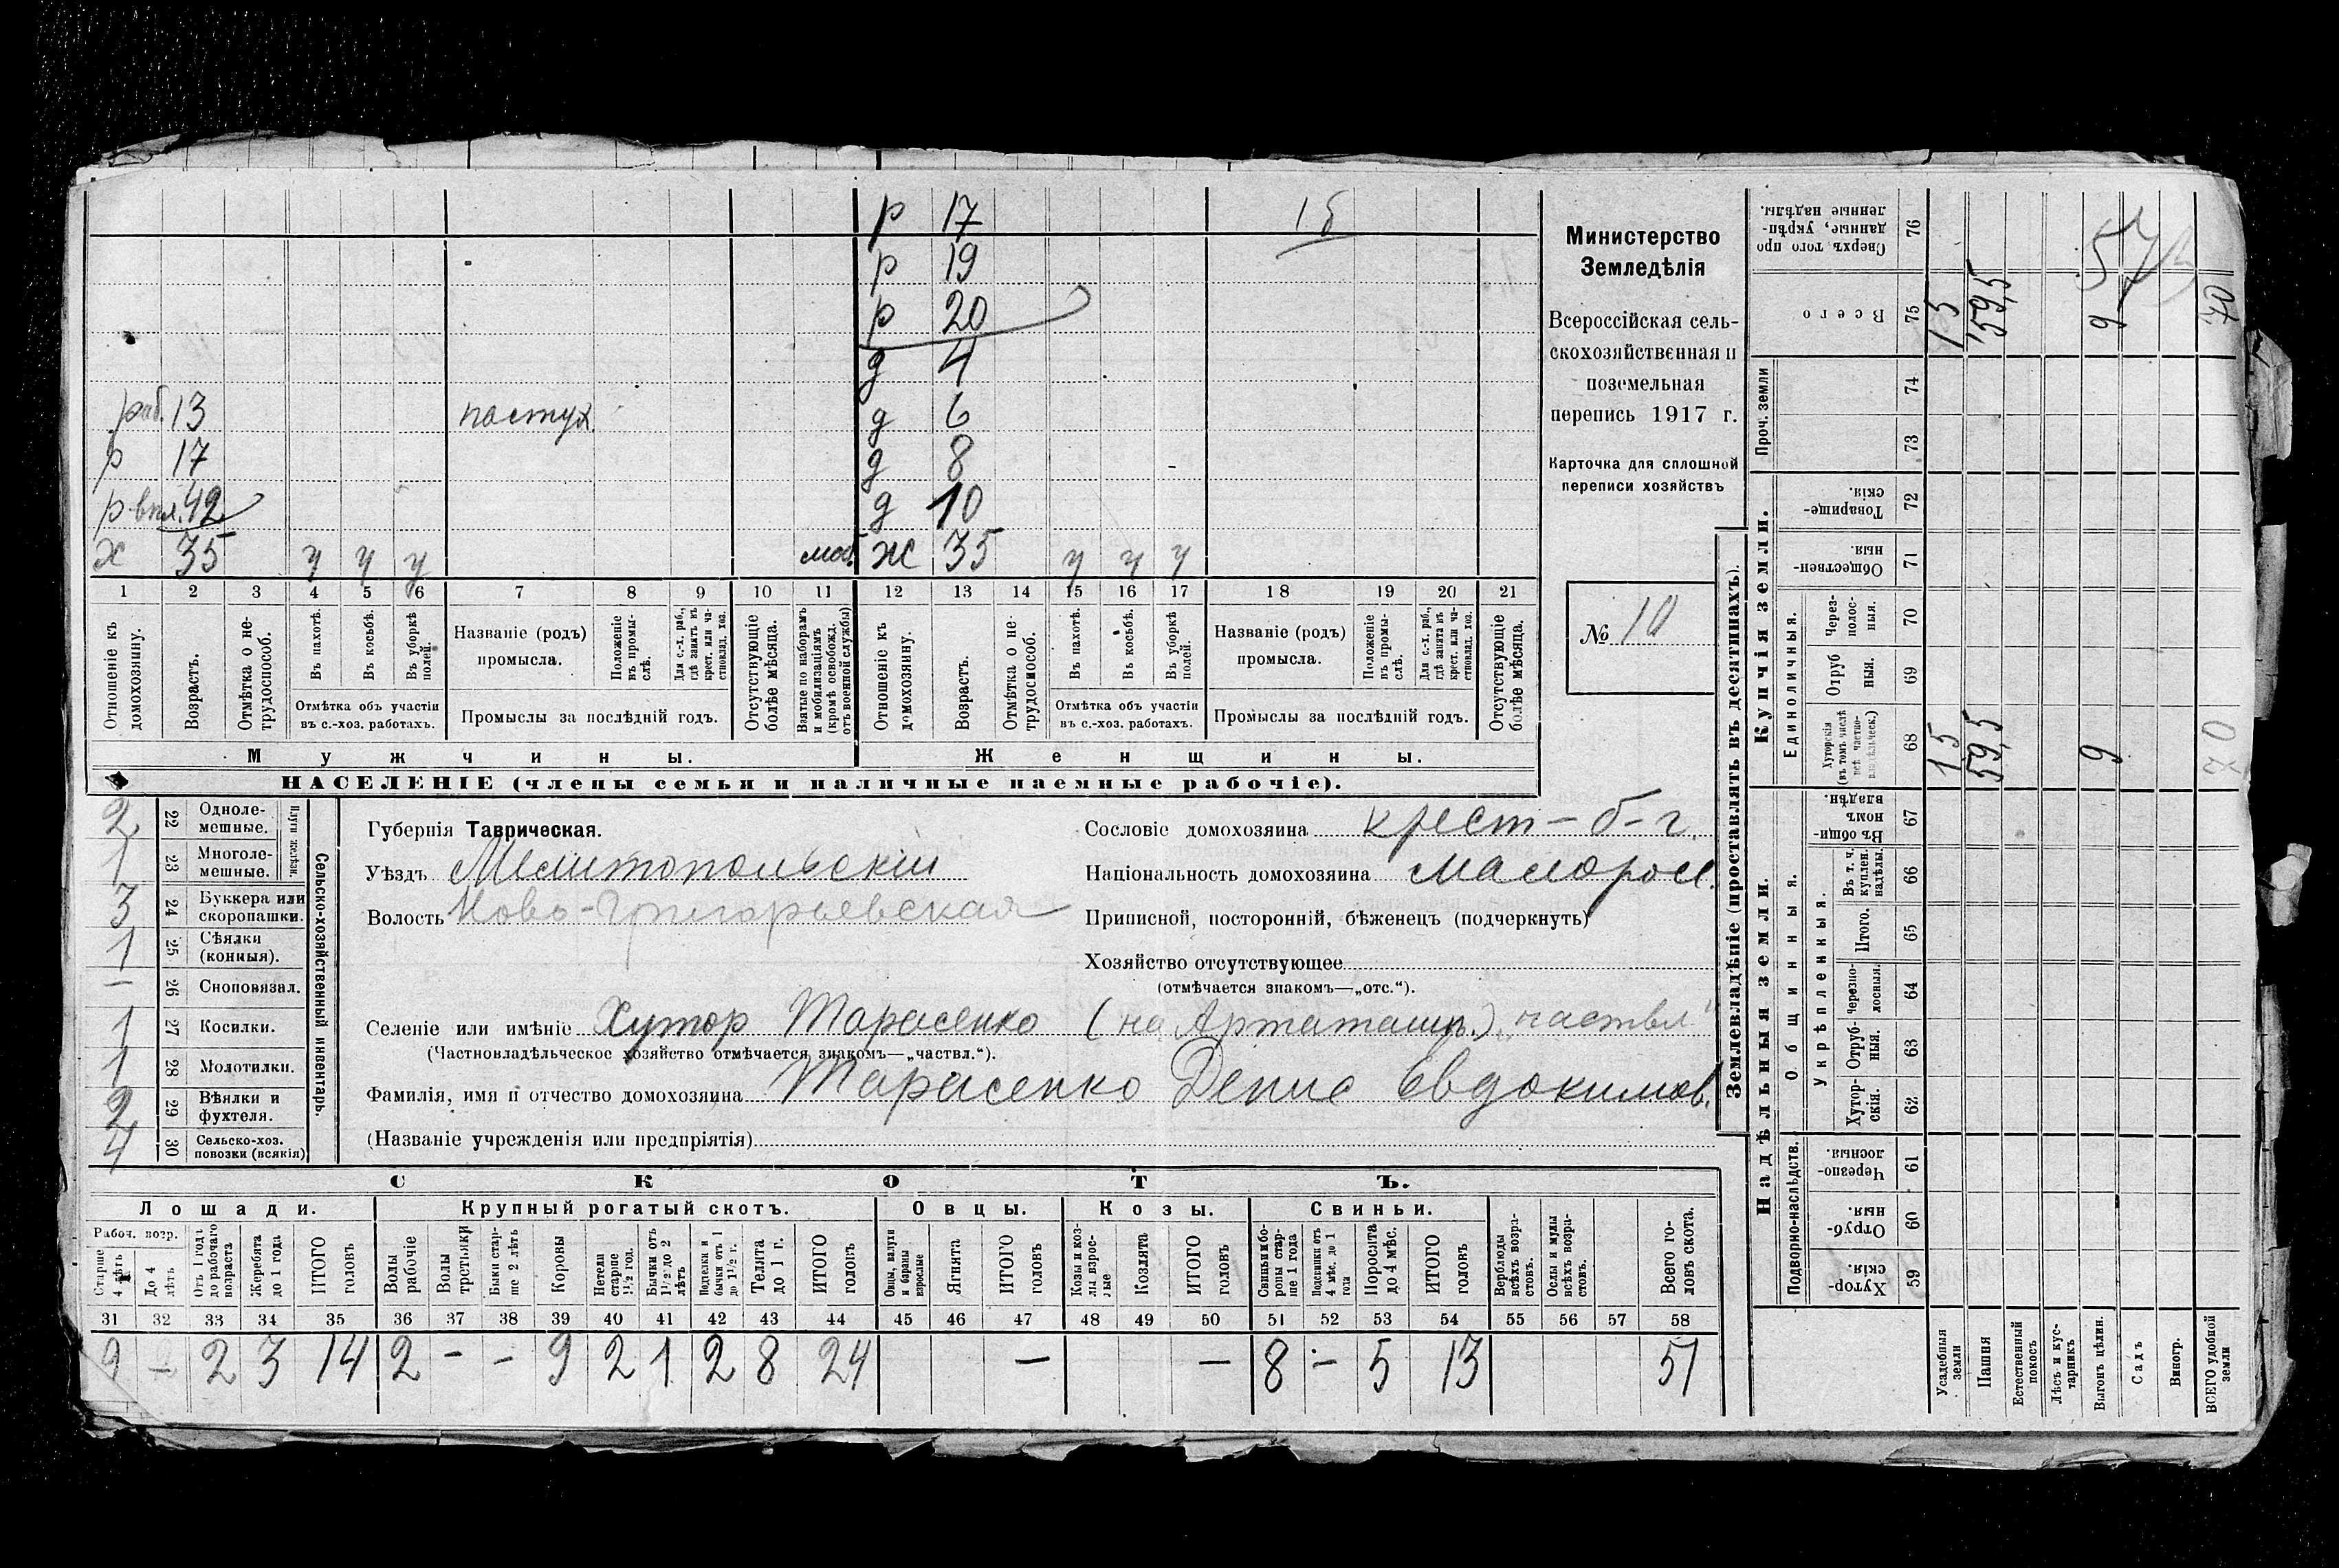 р 17 1б
р 19
р 20
д 4
раб. 13 пастух. д 6
р 17 д 8
р. 42 д 10
х 35 у у у моб. ж 35 у у у
1 2 3 4 5 6 7 8 9 10 11 12 13 14 15 16 17 18 19 20 21
Отношеніе къ домохозяину.
Возрастъ.
Отмѣтка о не-
трудоспособ.
Въ пахотѣ.
Въ косьбѣ.
Въ уборкѣ
полей.
Отмѣтка объ участіи
въ с.-хоз. работахъ.
Названіе (родъ)
промысла.
Положеніе
въ промы-
слѣ.
Для с.-х. раб.,
гдѣ занятъ въ
крест. или ча-
стновлад. хоз.
Промыслы за послѣдній годъ.
Отсутствующіе
болѣе мѣсяца.
Взятые по наборамъ
и мобилизаціямъ
(кромѣ освобожд.
отъ военной службы)
Отношеніе къ
домохозяину.
Возрастъ.
Отмѣтка о не-
трудоспособ.
Въ пахотѣ.
Въ косьбѣ.
Въ уборкѣ
полей.
Отмѣтка объ участіи
въ с.-хоз. работахъ.
Названіе (родъ)
промысла.
Положеніе
въ промы-
слѣ.
Для с.-х. раб.,
гдѣ занята въ
крест. или ча-
стновлад. хоз.
Промыслы за послѣдній годъ.
Отсутствующіе
болѣе мѣсяца.
Мужчины. Женщины.
НАСЕЛЕНІЕ (члены семьи и наличные наемные рабочіе).
Министерство
Земледѣлія
Всероссійская сель-
скохозяйственная и
поземельная
перепись 1917 г.
Карточка для сплошной
переписи хозяйствъ
№ 10
2 22 Одноле-
мешные.
1 23 Многоле-
мешные.
Плуги желѣзн.
3 24 Буккера или
скоропашки.
1 25 Сѣялки
(конныя).
— 26 Сноповязал.
1 27 Косилки.
1 28 Молотилки.
2 29 Вѣялки и
фухтеля.
4 30 Сельско-хоз.
повозки (всякія)
Сельско-хозяйственный инвентарь.
Губернія Таврическая.
Уѣздъ Мелитопольскій
Волость Ново-Григорьевская
Сословіе домохозяина крест-б-г.
Національность домохозяина малорос.
Приписной, посторонній, бѣженецъ (подчеркнуть)
Хозяйство отсутствующее
(отмѣчается знакомъ—„отс.“).
Селеніе или имѣніе Хутор Тарасенко (на ) „частвл“
(Частновладѣльческое хозяйство отмѣчается знакомъ—„частвл.“).
Фамилія, имя и отчество домохозяина Тарасенко Денис Евдокимов.
(Названіе учрежденія или предпріятія)
СКОТЪ.
Лошади. Крупный рогатый скотъ. Овцы. Козы. Свиньи.
Рабоч. возр.
Старше
4 лѣтъ
До 4
лѣтъ
Отъ 1 года
до рабочаго
возраста
Жеребята
до 1 года
ИТОГО
головъ
Волы
рабочіе
Волы
третьяки
Быки стар-
ше 2 лѣтъ
Коровы
Нетели
старше
1½ год.
Бычки отъ
1½ до 2
лѣтъ
Подтелки и
бычки отъ 1
до 1½ г.
Телята
до 1 г.
ИТОГО
головъ
Овцы, валухи
и бараны
взрослые
Ягнята
ИТОГО
головъ
Козы и коз-
лы взрос-
лые
Козлята
ИТОГО
головъ
Свиньи бо-
ровы стар-
ше 1 года
Подсвинки отъ
4 мѣс. до 1
года
Поросята
до 4 мѣс.
ИТОГО
головъ
Верблюды
всѣхъ возра-
стовъ.
Ослы и мулы
всѣхъ возра-
стовъ.
Всего го-
ловъ скота.
31 32 33 34 35 36 37 38 39 40 41 42 43 44 45 46 47 48 49 50 51 52 53 54 55 56 57 58
9 — 2 3 14 2 — — 9 2 1 2 8 24 — — 8 — 5 13 51
Землевладѣніе (проставлять въ десятинахъ).
Сверхъ того про-
данные, укрѣп-
ленные надѣлы. 76 57
Всего 75 1,5 59,5 9 70
Проч. земли 74
73
Купчія земли.
Товарище-
скія. 72
Обществен-
ныя. 71
Единоличныя.
Через-
полос-
ныя. 70
Отруб
ныя. 69
Хуторскія
(въ томъ числѣ
всѣ частно-
владѣльческ.) 68 1,5 59,5 9 70
Надѣльныя земли.
Общинныя.
Въ общи
номъ
владѣн. 67
Укрѣпленныя.
Въ т. ч.
куплен.
надѣлы. 66
Итого. 65
черезпо-
лосныя. 64
Отруб-
ныя. 63
Хутор-
скія. 62
Подворно-наслѣдств.
Черезпо-
лосныя. 61
Отруб-
ныя 60
Хутор-
скія. 59
Усадебныя
земли
Пашня
Естественный
покосъ
Лѣсъ и кус-
тарникъ
Выгонъ цѣлин.
Садъ
Виногр.
ВСЕГО удобной
земли